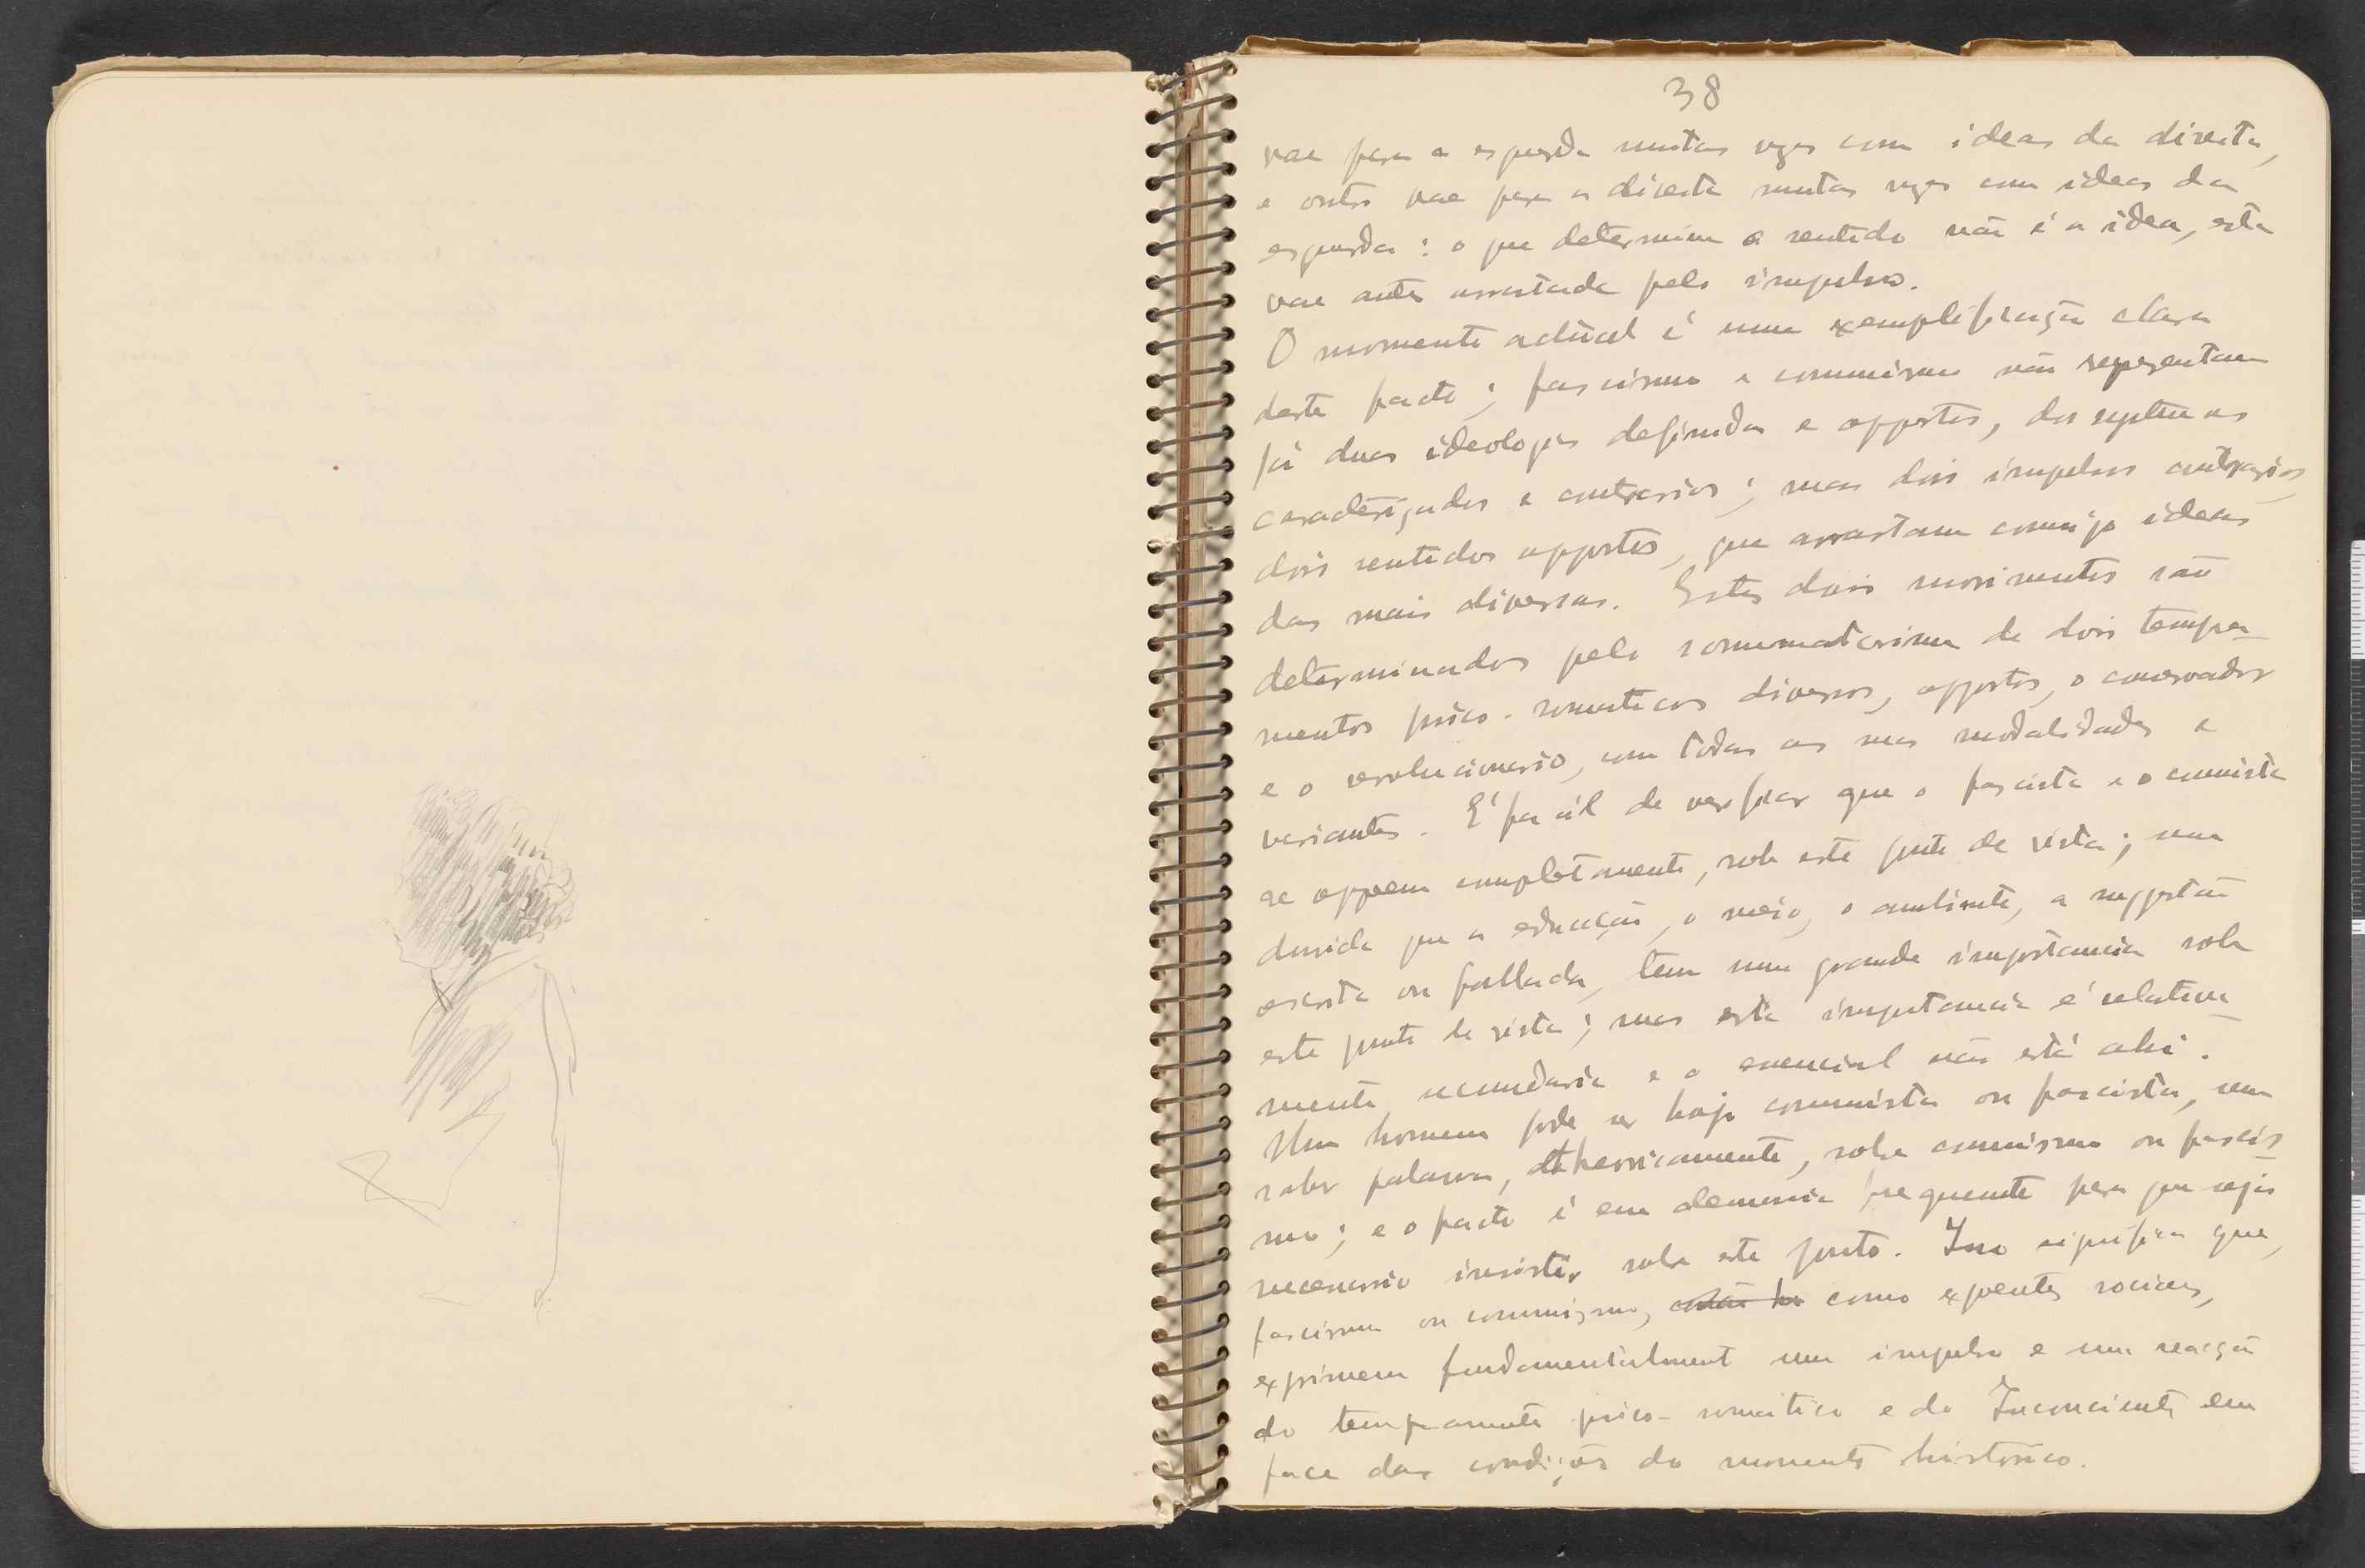 38
vae para a esquerda muitas vezes com ideas da direita,
e outro vae para a direita muitas vezes com ideas da
esquerda: o que determina o sentido não é a idea, esta
vae antes arrastada pelo impulso.
O momento actual é uma exemplificação clara
deste facto; fascismo e comunismo não representam
já duas ideologias definidas e oppostas, dos systemas
caracterizados e contrarios; mas dois impulsos contrarios,
dois sentidos oppostos, que arrastam comsigo ideas
das mais diversas. Estes dois movimentos são
determinados pelo de dois tempera-
mentos psico-somaticos diversos, oppostos, o conservador
e o revolucionario, com todas as suas modalidades e
variantes. É facil de verificar que o fascista e o comunista
se oppoem completamente, sob este ponto de vista; sem
duvida que a educação, o meio, o ambiente, a sugestão
escrita ou fallada, tem uma grande importancia sob
este ponto de vista; mas esta importancia é relativa-
mente secundaria e o essencial não está ahi.
Um homem pode ser hoje comunista ou fascista, sem
saber palavra, theoricamente, sobre comunismo ou fascis-
mo; e o facto é em demasia frequente para que seja
necessario insistir sobre este ponto. Isso significa que,
fascismo ou comunismo, como expoentes sociaes,
exprimem fundamentalment um impulso e uma reacção
do temperamento psico-somatico e do Inconciente em
face das condições do momento historico.